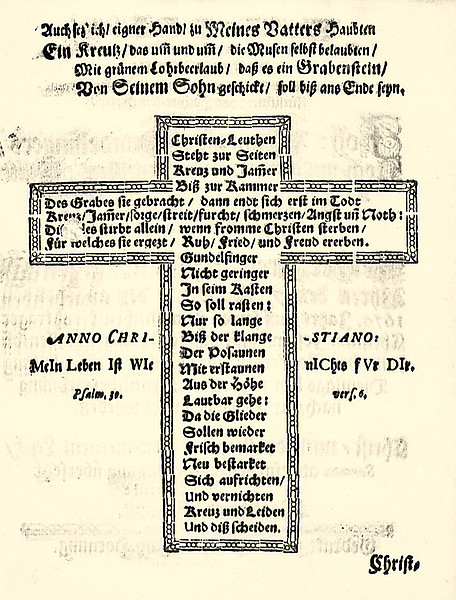 Auch setz' ich/ eigner Hand/ zu Meines Vatters Haubten
Ein Kreutz/ das um̃ und um̃/ die Musen selbst belaubten/
Mit grünem Lohrbeerlaub/ daß es ein Grabenstein/
Von Seinem Sohn geschickt/ soll biß ans Ende seyn.
Christen-Leuthen
Steht zur Seiten
Kreuz und Jam̃er
Biß zur Kammer
Des Grabes sie gebracht/ dann endt sich erst im Todt
Kreuz/Jam̃er/sorge/streit/furcht/schmerzen/Angst uñ Noth:
stirbt allein/ wenn fromme Christen sterben/
Für welches sie ergezt/ Ruh/ Fried/ und Freud ererben.
Gundelfinger
Nicht geringer
In seim Kasten
So soll rasten:
Nur so lange
Biß der klange
Der Posaunen
Mit erstaunen
Aus der Höhe
Lautbar gehe:
Da die Glieder
Sollen wieder
Frisch bemarket
Neu bestarket
Sich aufrichten/
Und vernichten
Kreuz und Leiden
Und diß scheiden.
ANNO CHRI-STIANO:
MeIn Leben Ist WIe nIChts fVr DIr.
Psalm. 39. vers. 6.
Christ-